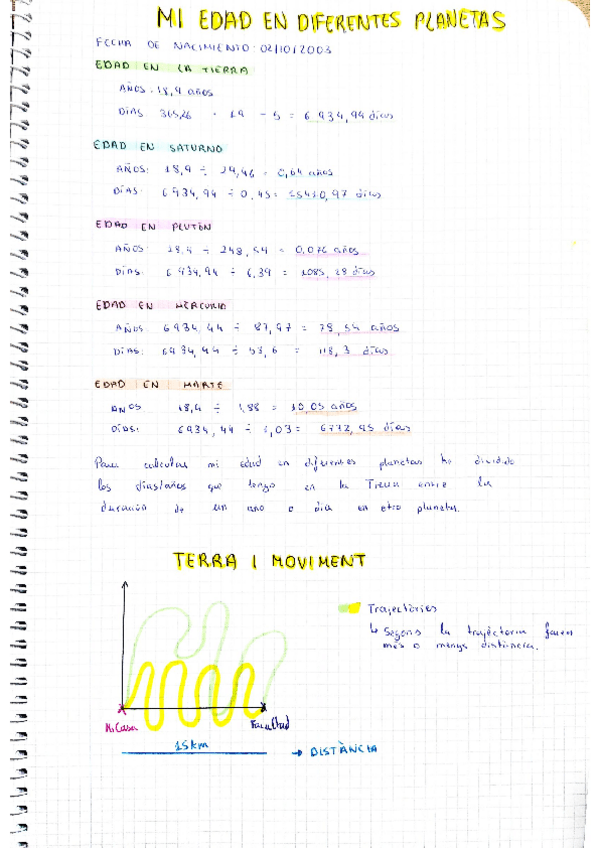 MI EDAD EN DIFERENTES PLANETAS
FECHA DE NACIMIENTO: 02/10/2003
EDAD EN LA TIERRA
AÑOS: 18,9 años
DÍAS 365,26 · 19 - 5 = 6 934,94 días
EDAD EN SATURNO
AÑOS: 18,9 ÷ 29,46 = 0,64 años
DÍAS: 6934,94 ÷ 0,45 = 15410,97 días
EDAD EN PLUTÓN
AÑOS: 18,9 ÷ 248,54 = 0,076 años
DÍAS: 6934,94 ÷ 6,39 = 1085,28 días
EDAD EN MERCURIO
AÑOS: 6934,94 ÷ 87,97 = 78,54 años
DÍAS: 6934,94 ÷ 58,6 = 118,3 días
EDAD EN MARTE
AÑOS 18,9 ÷ 1,88 = 10,05 años
DÍAS: 6934,94 ÷ 1,03 = 6772,95 días
Para calcular mi edad en diferentes planetas he dividido
los días/años que tengo en la Tierra entre la
duración de un año o día en otro planeta.
TERRA I MOVIMENT
Trajectòries
↳ Segons la trajectoria farem
més o menys distància.
Mi Casa
Facultad
15km
→ DISTÀNCIA